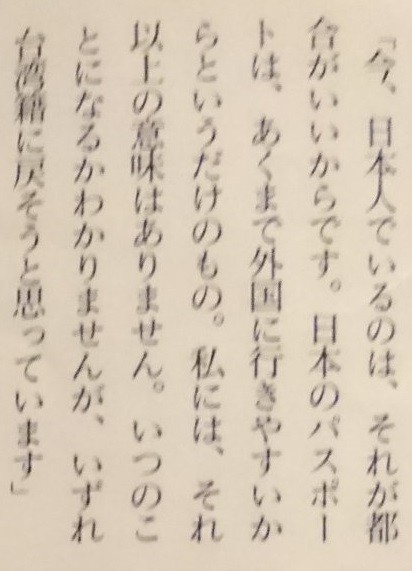 「今、日本人でいるのは、それが都
合がいいからです。日本のパスポー
トは、あくまで外国に行きやすいか
らというだけのもの。私には、それ
以上の意味はありません。いつのこ
とになるかわかりませんが、いずれ
台湾籍に戻そうと思っています」